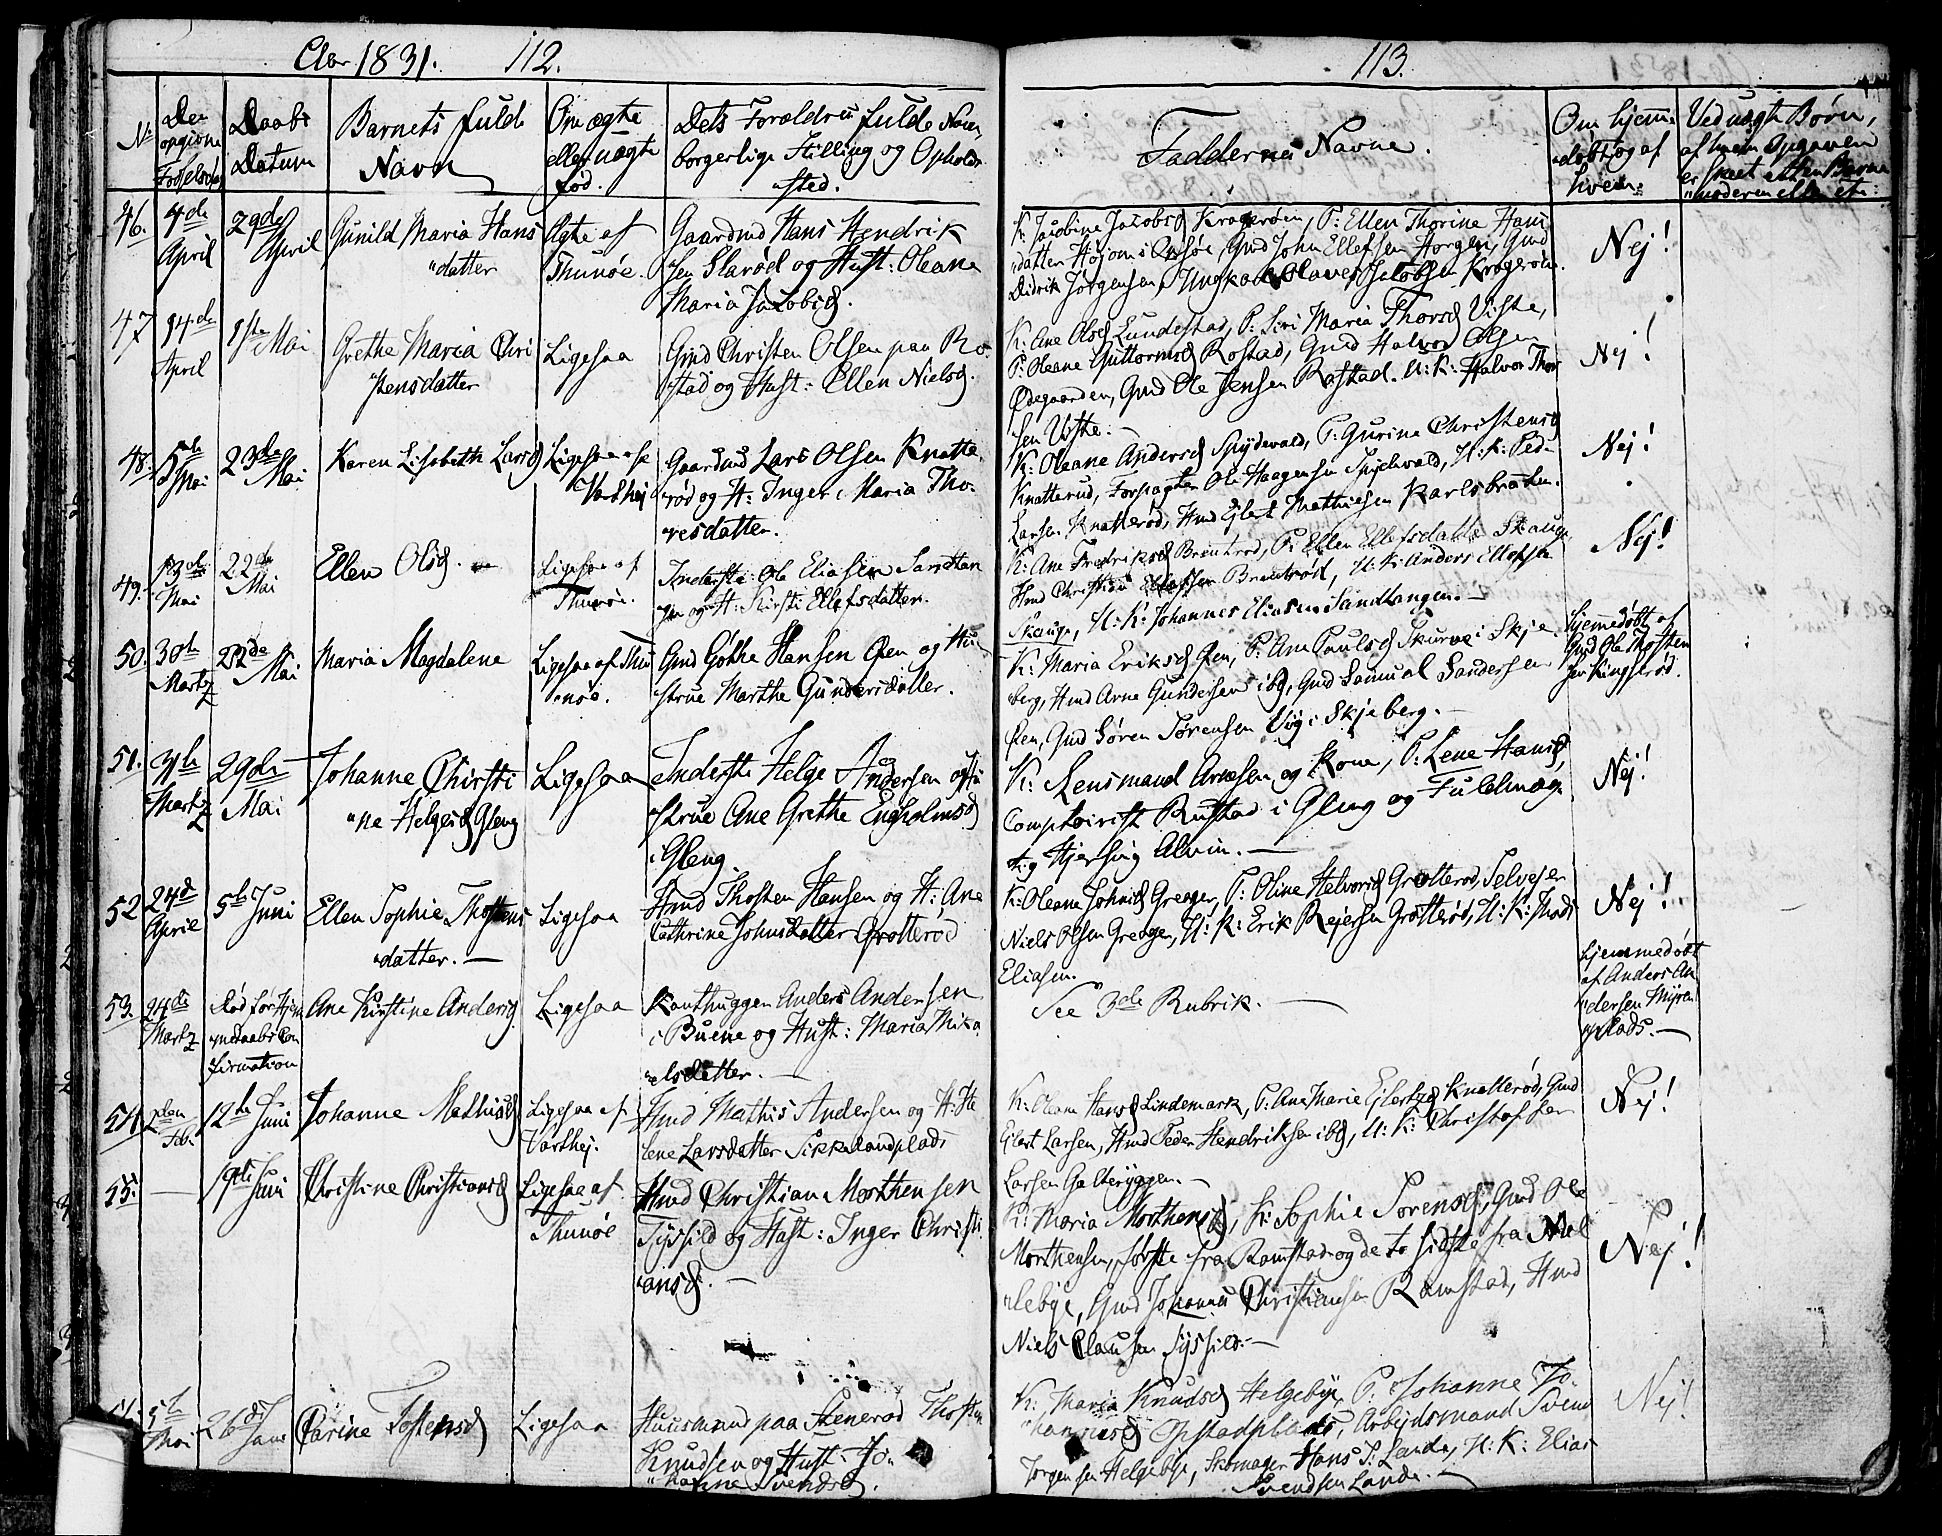 Aar 1831. 112.
No
Den opgivne Fødselsdag
Daabs Datum
Barnets fulde Navn
Om ægte eller uægte fød.
Dets Forældres fulde Navn
borgerlige Stilling og Opholds
sted.
46.
4de April
29de April
Gunild Maria Hans
"datter
Ægte af
Thunøe.
Gaardmd Hans Hendrik
sen Slarød og Hust: Oleane
Maria Jacobsd.
47
14de April
1ste Mai
Grethe Maria Chri
"stensdatter
Ligesaa
Gmd Christen Olsen paa Ro
stad og Hust: Ellen Nielsd.
48.
5te Mai
23de Mai
Karen Lisbeth Larsd
Ligesaa
Gaardmd Lars Olsen Knatte
"rød og H: Inger Maria Tho
"resdatter.
49.
13de Mai
22de Mai
Ellen Olsd.
Ligesaa af
Thunøe.
Inderste Ole Eliasen Sandtan
gen og H: Kirsti Ellefsdatter.
50.
30te Martz
22de Mai
Maria Magdalene
Ligesaa af Thu
"nøe.
Gmd Gøthe Hansen Øen og Hu
strue Marthe Gundersdatter.
51.
Martz
29de Mai
Johanne Christi
"ne Helgesd Gleng
Ligesaa
Inderste Helge Andersen og Hu
strue Ane Grethe Engholmsd
i Gleng.
52
24d April
5te Juni
Ellen Sophie Thostens
"datter.
Ligesaa
Hmd Thosten Hansen og H: Ane
Cathrine Johnsdatter Grotterød
53.
24de Martz
Død før Hjem
medaabs Con
firmation
Ane Kirstine Andersd.
Ligesaa
Kanthugger Anders Andersen
i Buene og Hust: Maria Mika
"elsdatter.
54.
2den Feb.
12te Juni
Johanne Mathisd
Ligesaa af
Varthej.
Hmd Mathis Andersen og H: He
lene Larsdatter Sikkelandplads
55.
19de Juni
Christine Christiansd
Ligesaa af
Thunøe
Hmd Christian Morthensen
Tyssild og Hust: Inger Christi
"ansd.
5te Mai
26de Juni
Carine Tostensd
Ligesaa
Huusmand paa Stenerød Thosten
Knudsen og Hust: Jo
"hanne Svendsd.
113.
Faddernes Navne.
Om hjem
døbt og af
hvem
Ved uægte Børn,
af hvem Opgaven
er skeet etter Barne
"moderen eller et:
K: Jacobine Jacobsd Kragerøen, P: Ellen Thorine Hans
"datter Højom i Onsøe, Gmd John Ellefsen Horgen, Gmd
Didrik Jørgensen, Ungkarl Olaves Jacobsen Kragerøen.
Nej!
K: Ane Olsd Lundestad, P: Siri Maria Thorsd Viste,
P: Oleane Guttormsd Rostad, Gmd Halvor Olsen
Ødegaarden, Gmd Ole Jensen Rostad. U: K: Halvor Thor
sen Viste.
Nej!
K: Oleane Andersd Spydevald, P: Gurine Christensd
Knatterud, Forpagter Ole Haagensen Spydevald, U: K: Ped
Larsen Knatterød, Hmd Ejlert Mathiesen Karlsbraaten.
Nej!
K: Ane Fredriksd Brentrød, P: Ellen Ellefsdatter Skauge
Hmd Christian Ellefsen Brentrød, U: K: Anders Ellefsen
Skauge, U: K: Johannes Eliasen Sandtangen.
Nej!
K: Maria Eriksd Øen, P: Ane Paulsd Skurve i Skje
berg, Hmd Arne Gundersen ibd, Gmd Samuel Sandersen
Øen, Gmd Søren Sørensen Vig i Skjeberg.
hjemmedøbt af
Gmd Ole Thosten
sen Kingsrød.
K: Lensmand Arnesen og Kone, P: Lene Hansd,
Comptoirist Rustad i Gleng og Fuldmæg
tig Hjersing Alvin.
Nej!
K: Oleane Johnsd Greager, P: Oline Helvorsd Grotterød, Selvejer
Niels Olsen Greager, U: K: Erik Rejersen Grotterød, U: K: Mads
Eliasen.
Nej!
See 3de Rubrik.
hjemmedøbt
af Anders An
"dersen Myren
plads.
K: Oleane Hansd Lindemark, P: Ane Marie Ejlertsd Knatterød, Gmd
Ejlert Larsen, Hmd Peder Hendriksen ibd, U: K: Christoffer
Larsen Galteryggen.
Nej!
K: Maria Morthensd, K: Sophie Sørensd, Gmd Ole
Morthensen, første fra Ramstad og de to sidste fra Møl
"lebye, Gmd Johannes Christiansen Ramstad, Hmd
Niels Clausen Tyssild.
Nej!
K: Maria Knudsd Helgebye, P: Johanne Jo
"hannesd Opstadplads, Arbejdsmand Svend
Jørgensen Helgebye, Skomager Hans J: Lande, U: K: Elias
Svendsen Lande.
Nej!